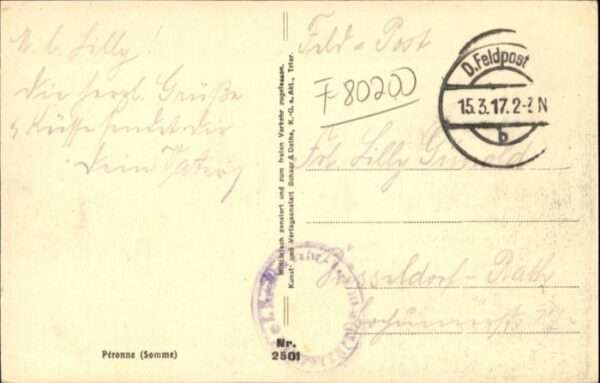 M. l. Lilly!
die herzl. Grüße
u Küsse sendet dir
dein Vater
Feld-Post
F-80200
D. Feldpost
15.3.17. 2-3 N
b
Frl. Lilly
Düsseldorf-Rath
Militärisch zensiert und zum freien Verkehr zugelassen.
Kunst- und Verlagsanstalt Schaar & Dathe, K.-G. a. Akt., Trier.
Nr.
2501
Péronne (Somme)